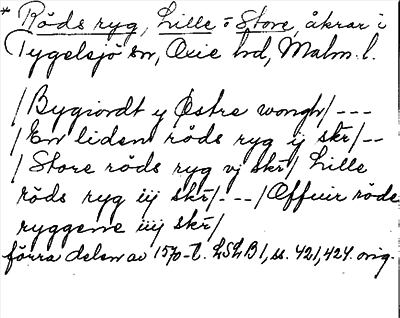 * Röds ryg, Lille = Store, åkrar i
Tygelsjö sn, Oxie hd, Malm. l.
/Bygiordt y Østre wongh/ - - -
/En liden röds ryg ij skr/ - -
/Store röds ryg vj skr/ Lille
röds ryg iij skr/ - - - /Offuir röds
ryggene iiij skr/
förra delen av 1570-t. LSLB 1, ss. 421, 424. orig.